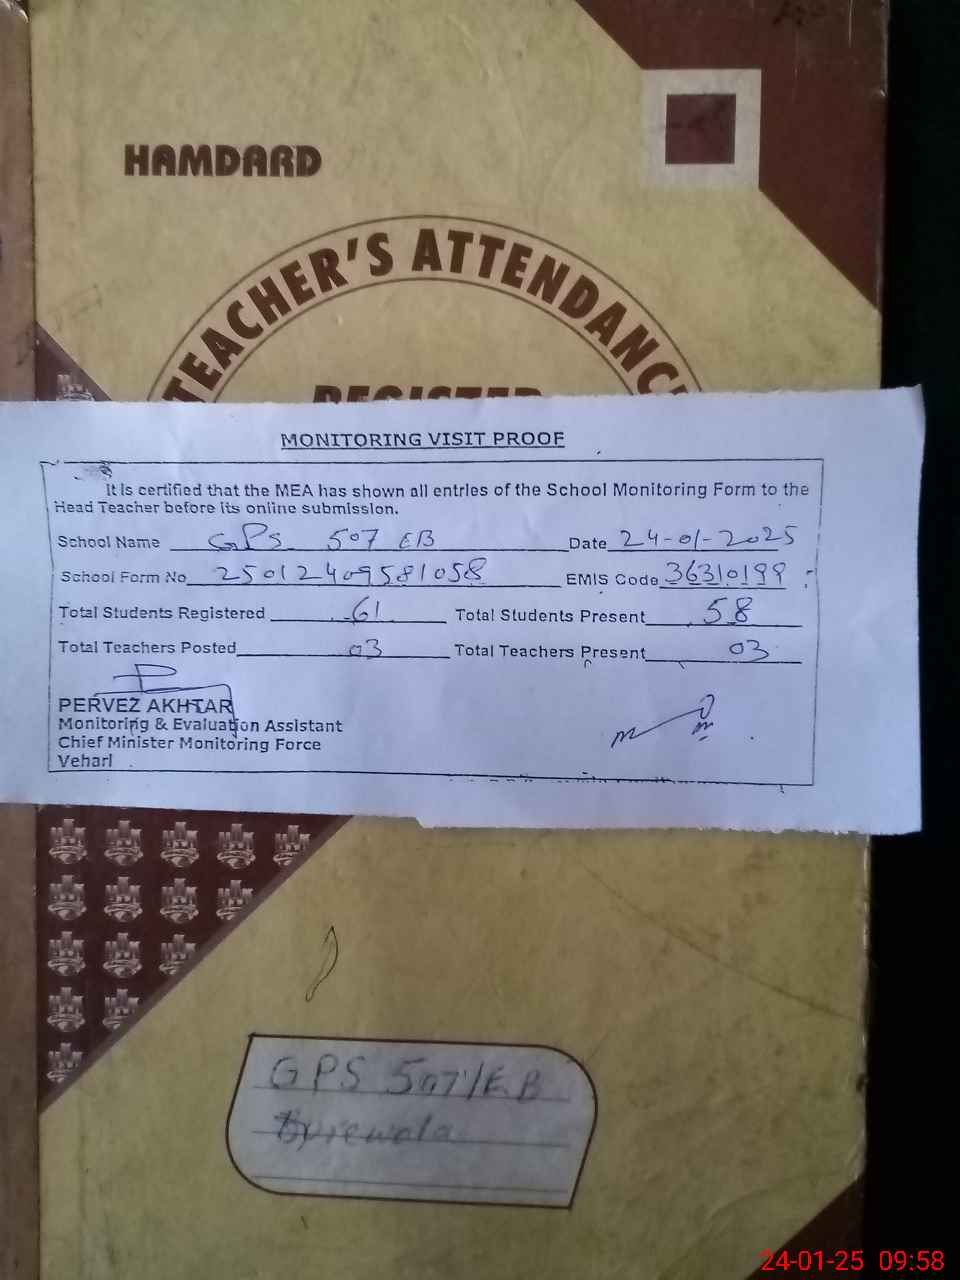 HAMDARD
TEACHER'S ATTENDANCE
REGISTER
MONITORING VISIT PROOF
It is certified that the MEA has shown all entries of the School Monitoring Form to the
Head Teacher before its online submission.
School Name GPS 507 EB Date 24-01-2025
School Form No 25012409581058 EMIS Code 36310199
Total Students Registered 61 Total Students Present 58
Total Teachers Posted 03 Total Teachers Present 03
PERVEZ AKHTAR
Monitoring & Evaluation Assistant
Chief Minister Monitoring Force
Vehari
GPS 507/EB
Burewala
24-01-25 09:58